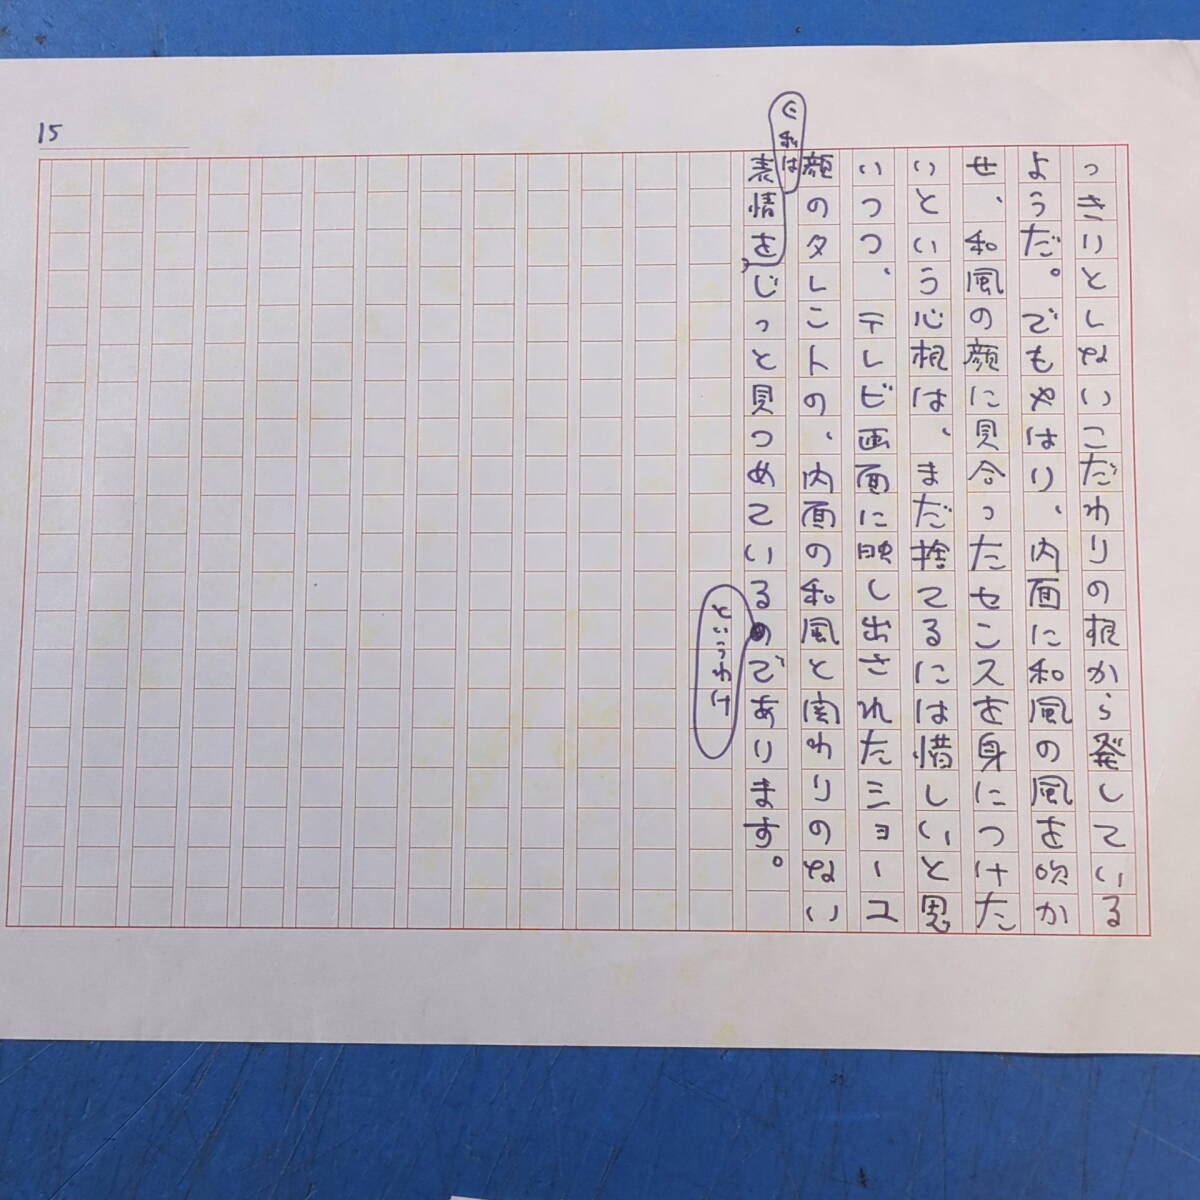 15
っきりとしないこだわりの根から発している
ようだ。でもやはり、内面に和風の風を吹か
せ、和風の顔に見合ったセンスを身につけた
いという心根は、まだ捨てるには惜しいと思
いつつ、テレビ画面に映し出されたショーユ
顔のタレントの、内面の和風と関わりのない
私は
表情をじっと見つめているのであります。
というわけ